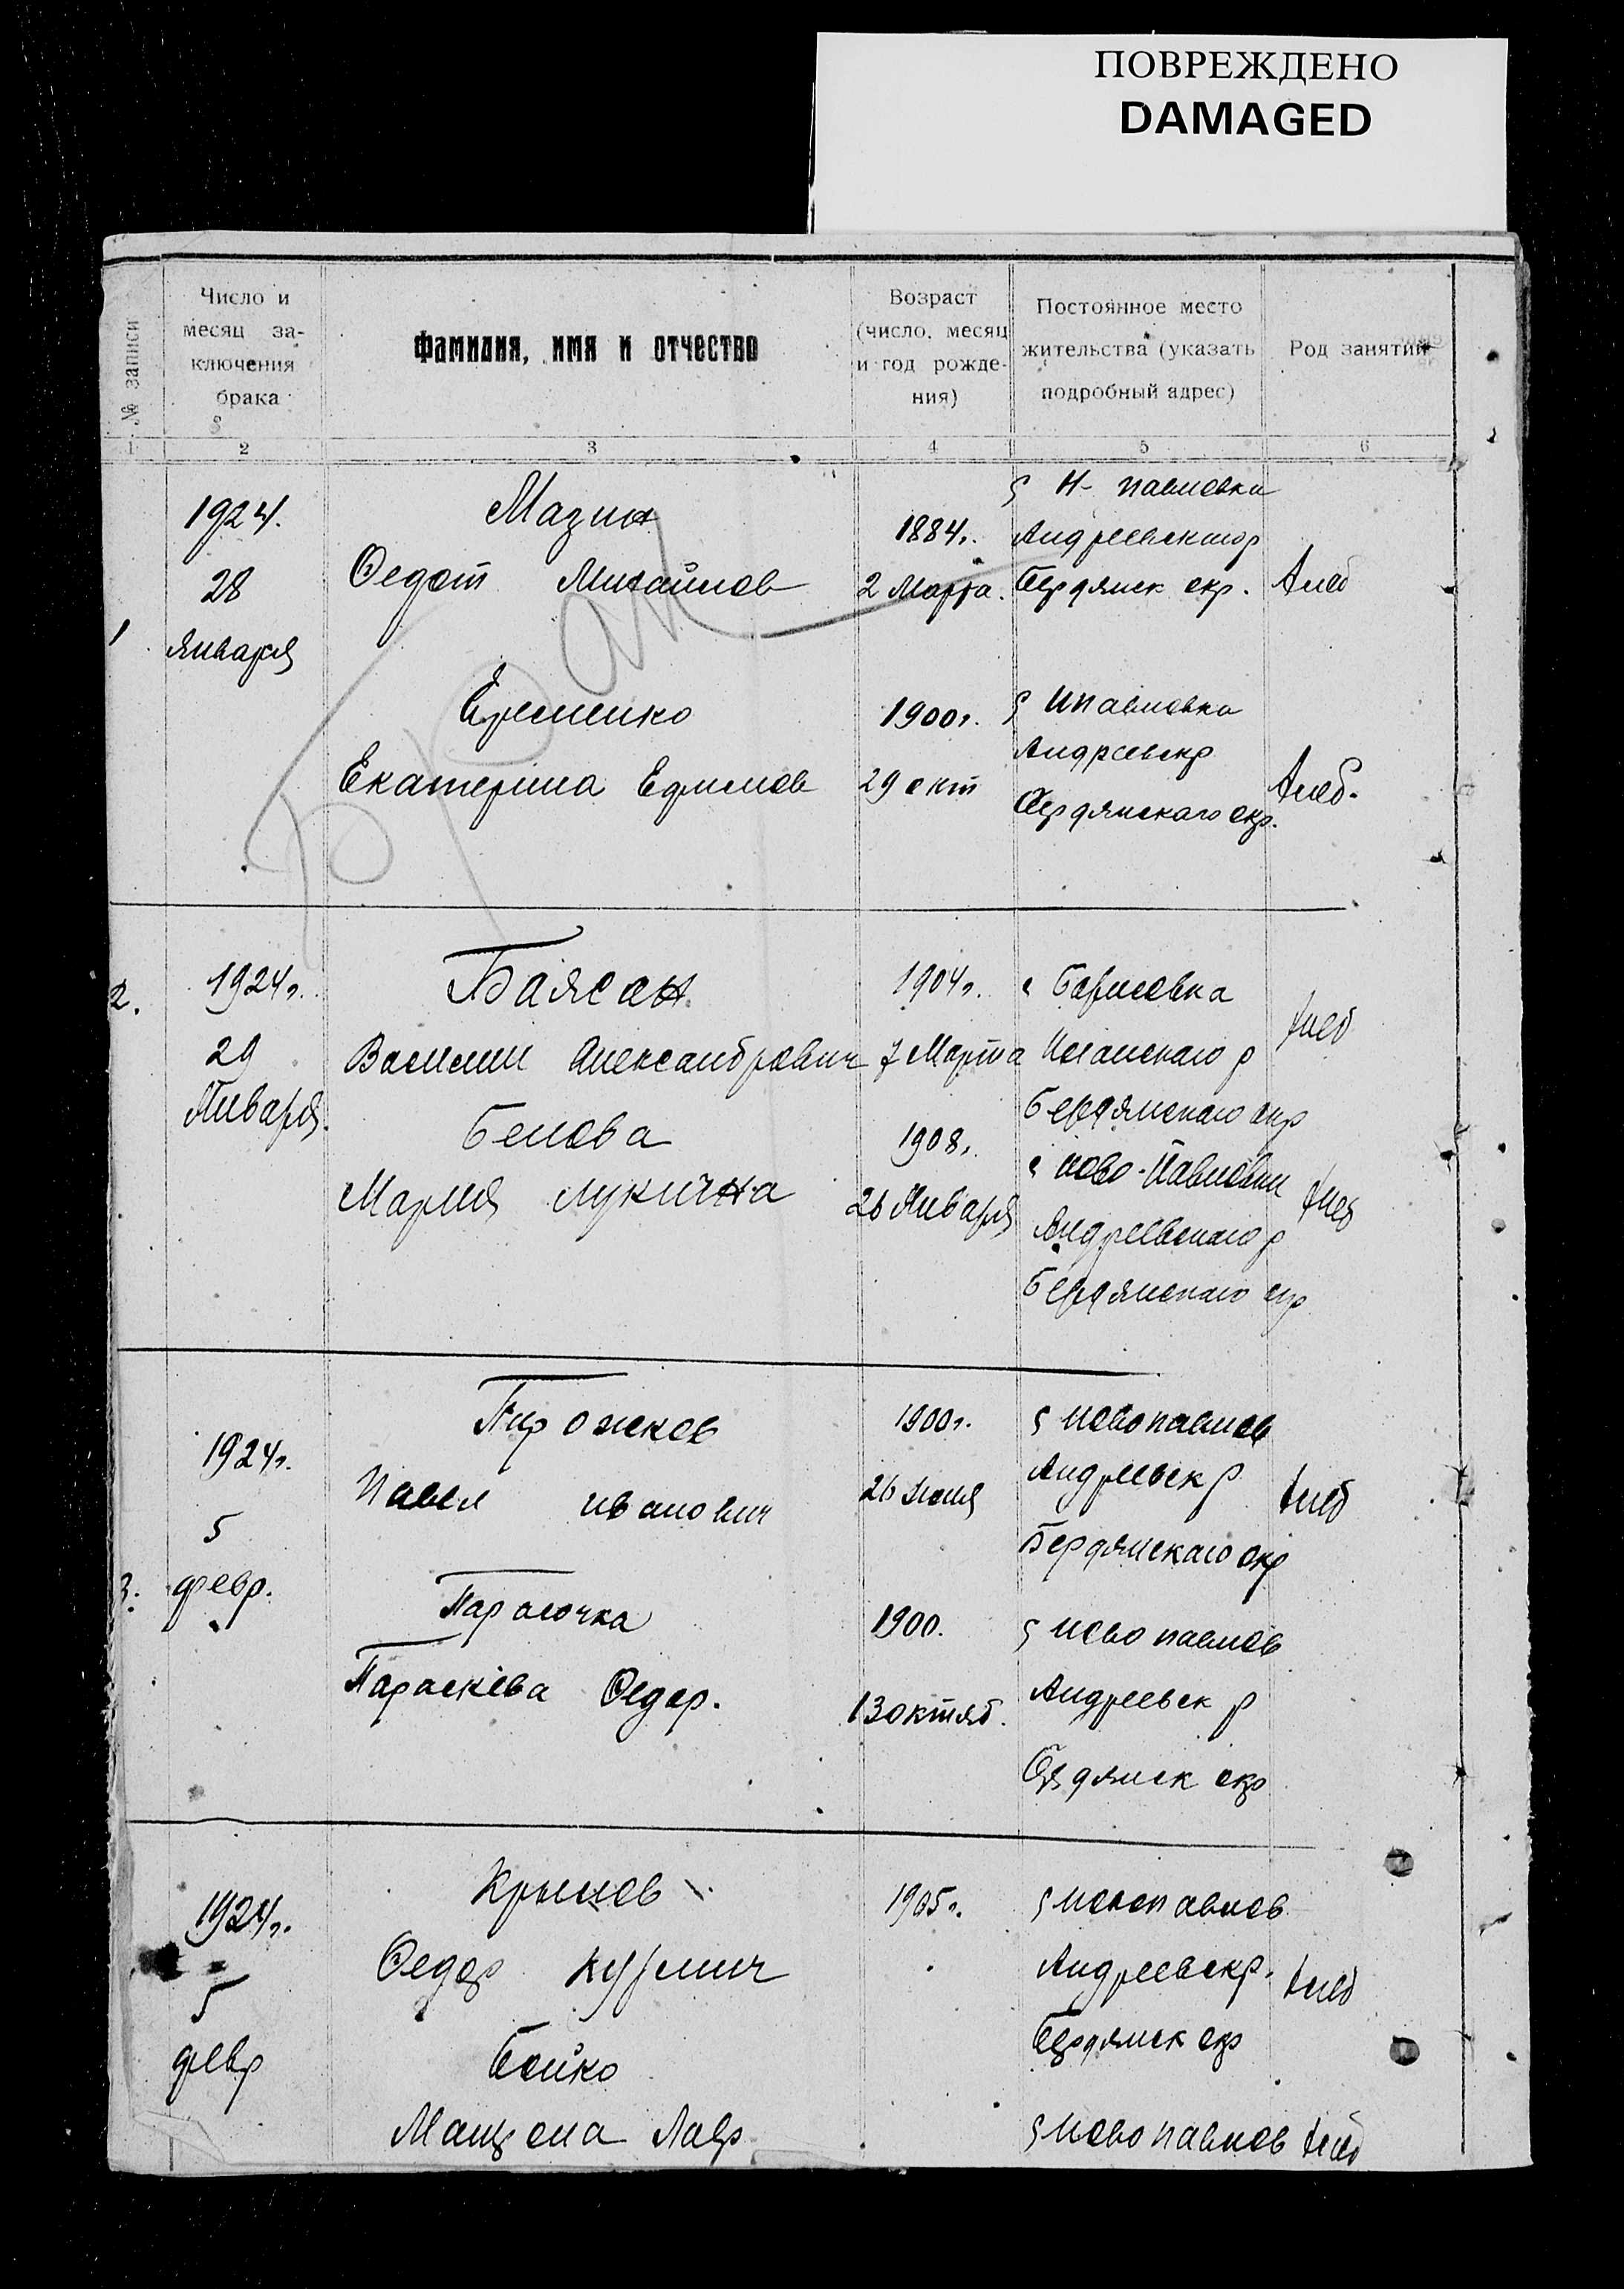 ПОВРЕЖДЕНО
DAMAGED
№ записи
Число и месяц за-ключения брака
Фамилия, имя и отчество
Возраст (число, месяц и год рожде-ния)
Постоянное место жительства (указать подробный адрес)
Род занятий
1 2 3 4 5 6
1
1924.
28
января
Мазин
Федот Михайлов
1884г.
2 Марта.
с Н- павловки
Андреевск
Бердянск окр.
хлеб
Еременко
Екатерина Ефимов
1900г.
29 окт
с Нпавловки
Андреевскр
Бердянскаго окр.
хлеб.
2.
1924г.
29
Января.
Баясан
Василий Александрович
1904г.
7 Марта
с Борисовка
р
Бердянскаго окр
хлеб
Белова
Мария Лукична
1908г.
26 Января
с Ново-Павловки
Андреевскаго р
Бердянскаго окр
хлеб
3.
1924г.
5
февр.
Пирожков
Павел Иванович
1900г.
26 Июня
с Новопавлов
Андреевск р
Бердянскаго окр
хлеб
Парасочка
Параскева Федор.
1900.
13 октяб.
с Ново павлов
Андреевск р
Бердянск окр
1924г.
5
февр
Крылов
Федор Кузмич
1905г.
с Новопавлов
Андреевскр.
Бердянск окр
хлеб
Бойко
Лавр
с Ново павлов
хлеб